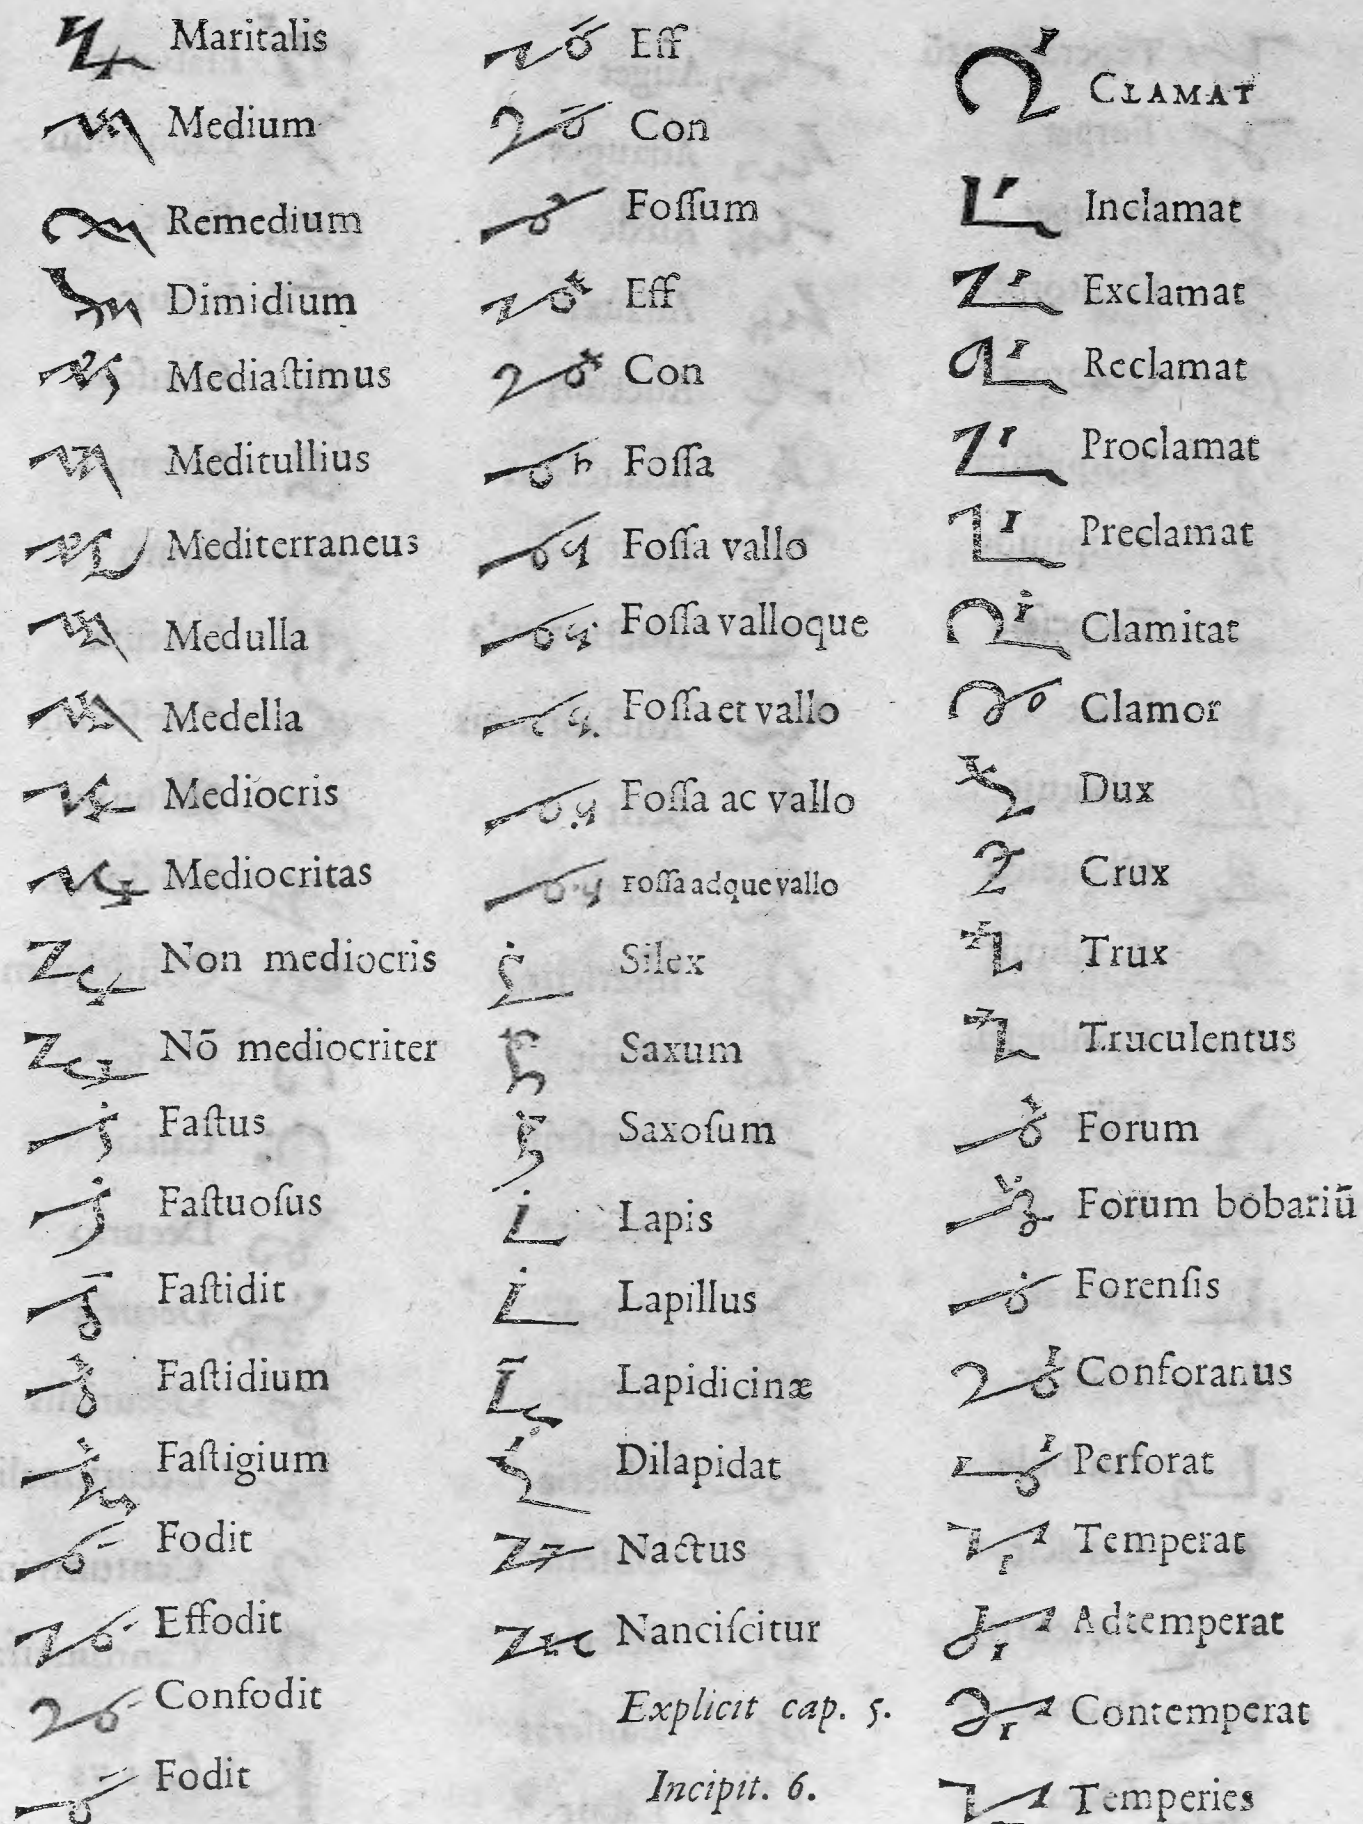 Maritalis
Medium
Remedium
Dimidium
Mediaſtimus
Meditullius
Mediterraneus
Medulla
Medella
Mediocris
Mediocritas
Non mediocris
Nō mediocriter
Faſtus
Faſtuoſus
Faſtidit
Faſtidium
Faſtigium
Fodit
Effodit
Confodit
Fodit
Eff
Con
Foſſum
Eff
Con
Foſſa
Foſſa vallo
Foſſa valloque
Foſſa et vallo
Foſſa ac vallo
Foſſa adque vallo
Silex
Saxum
Saxoſum
Lapis
Lapillus
Lapidicinæ
Dilapidat
Nactus
Nanciſcitur
Explicit cap. 5.
Incipit. 6.
CLAMAT
Inclamat
Exclamat
Reclamat
Proclamat
Preclamat
Clamitat
Clamor
Dux
Crux
Trux
Truculentus
Forum
Forum bobariū
Forenſis
Conforanus
Perforat
Temperat
Adtemperat
Contemperat
Temperies